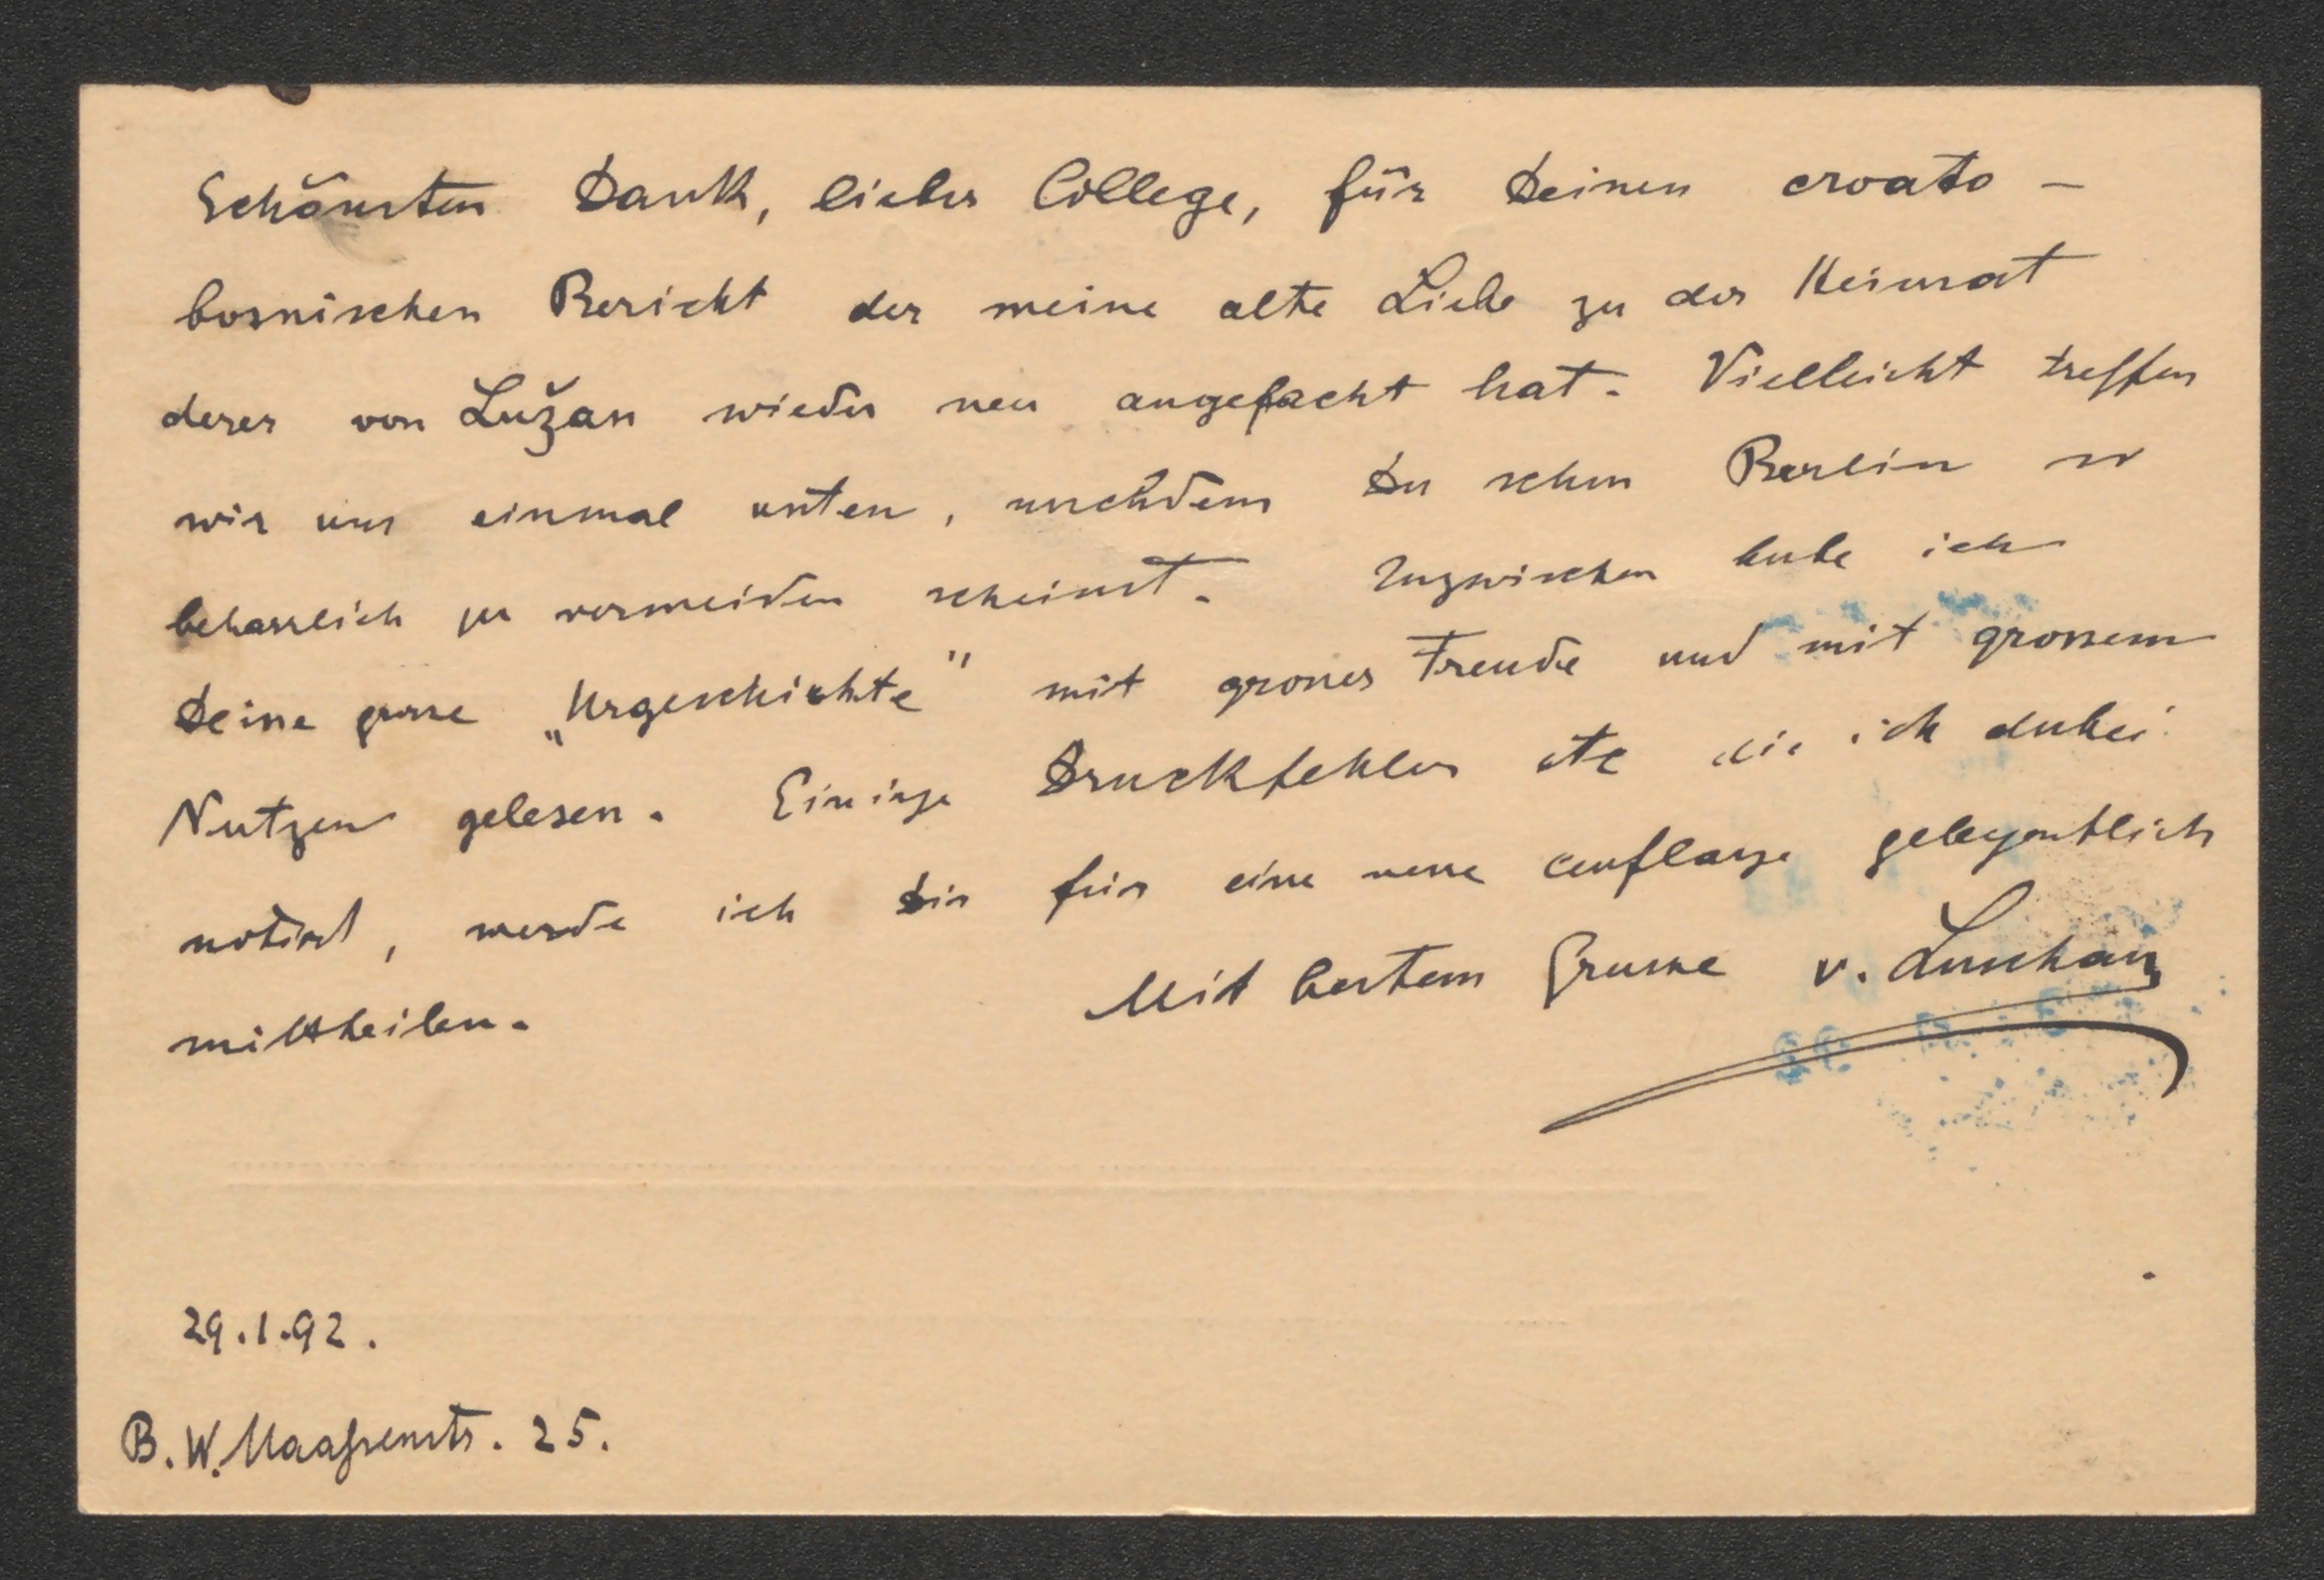 Schönsten Dank, lieber College, für Deinen croato-
bosnischen Bericht der meine alte Liebe zu der Heimat
derer von Lužan wieder neu angefacht hat. Vielleicht treffen
wir uns einmal unten, nachdem Du schon Berlin so
beharrlich zu vermeiden scheinst. Inzwischen habe ich
Deine grosse „Urgeschichte" mit grosser Freude und mit grossem
Nutzen gelesen. Einige Druckfehler etc die ich dabei
notirt, werde ich Dir für eine neue Auflage gelegentlich
mittheilen. Mit bestem Grusse v. Luschan
29.1.92.
B. W. Maaßenstr. 25.